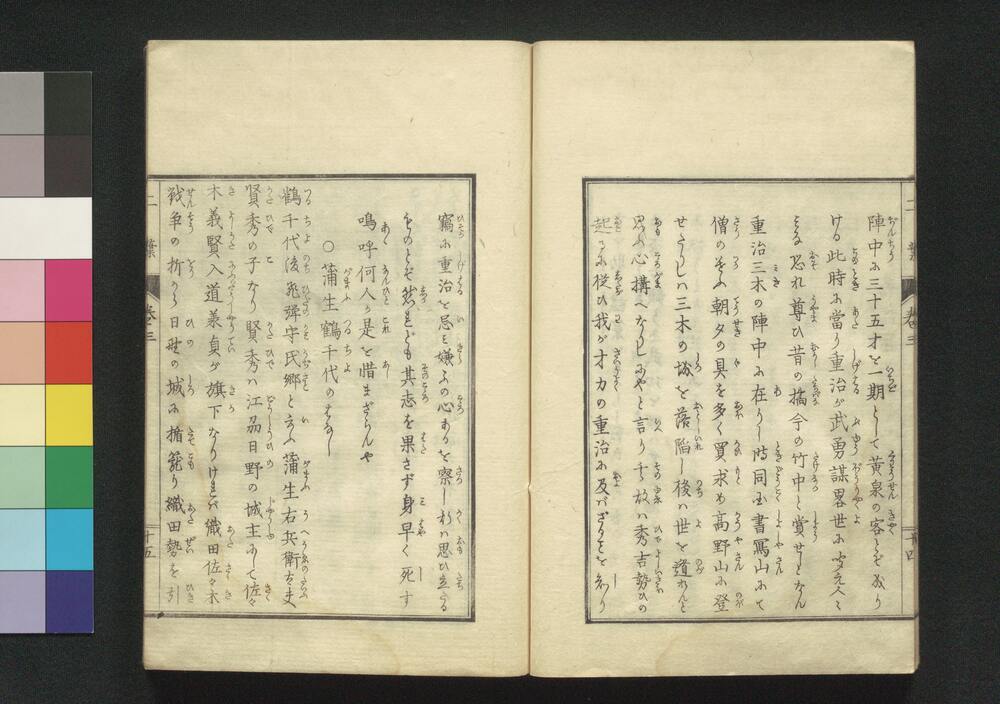 陣中に三十五才を一期として黄泉の客とぞ成り
ける此時に當り重治が武勇謀畧世に聞え人々
みな恐れ尊ひ昔の橘今の竹中と賞せしとなん
重治三木の陣中に在りし時同国書冩山にて
僧のそふ朝夕の具を多く買求め高野山に登
せたりしハ三木の城を落陥し後ハ世を遁れんと
思ふ心搆へなりしにやと言り其故ハ秀吉勢ひの
起るに従ひ我が才力の重治に及バざることを知り
竊に重治を忌ミ嫌ふの心あるを察し斯ハ思ひ立たる
ものとぞ然れども其志を果さず身早く死す
嗚呼何人か是を惜まざらんや
○蒲生鶴千代のはなし
鶴千代後飛騨守氏郷と云ふ蒲生右兵衛太夫
賢秀の子なり賢秀ハ江州日野の城主にして佐々
木義賢入道義貞が旗下なりけれバ織田佐々木
戦争の折から日野の城に楯籠り織田勢を引
二
巻三
十四
二
巻三
十五